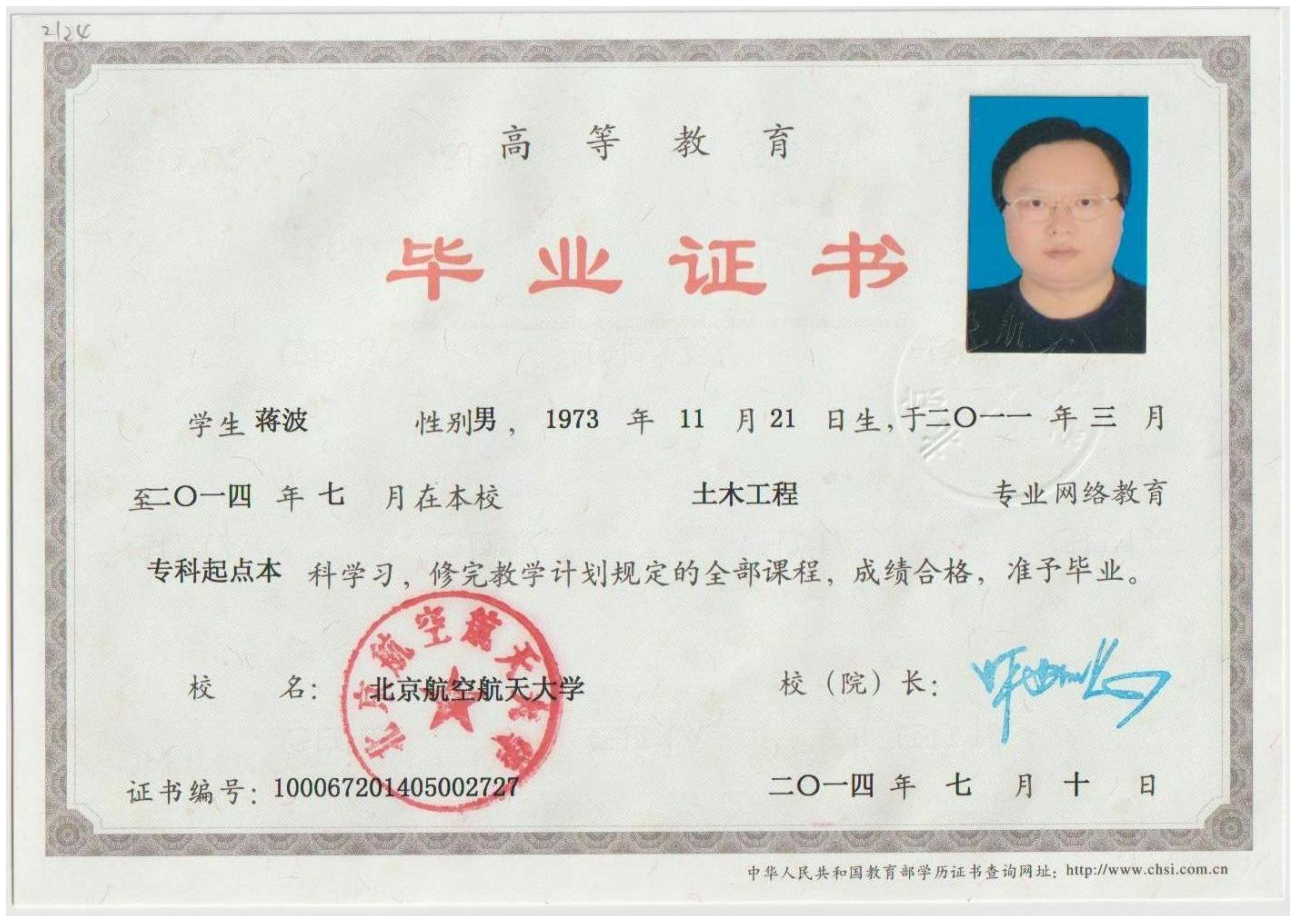 2/24
高等教育
毕业证书
学生 蒋波 性别男，1973 年 11 月 21 日生，于二〇一一 年 三 月
至二〇一四 年 七 月在本校 土木工程 专业网络教育
专科起点本 科学习，修完教学计划规定的全部课程，成绩合格，准予毕业。
校 名：北京航空航天大学 校（院）长：
北京航空航天大学
证书编号：100067201405002727 二〇一四 年 七 月 十 日
中华人民共和国教育部学历证书查询网址：http://www.chsi.com.cn